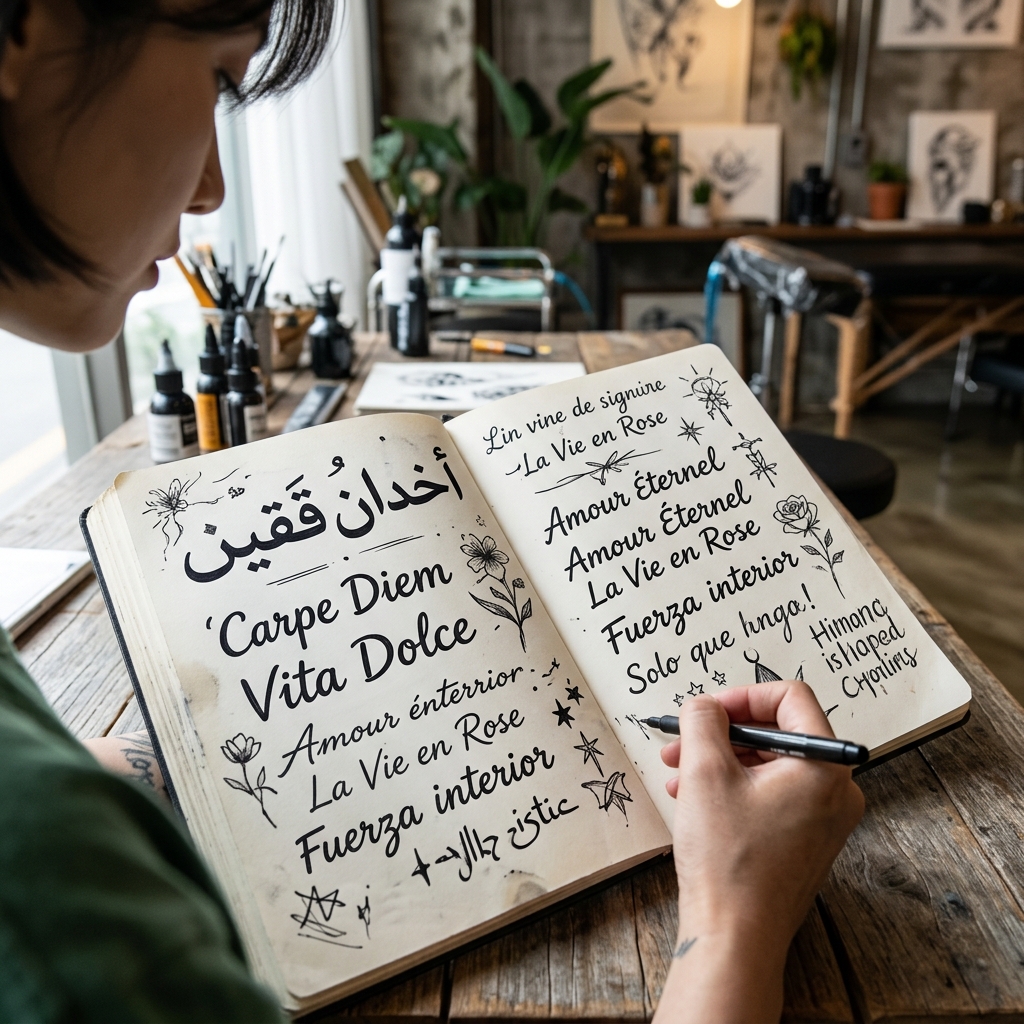 أخدانُ قَقين
Carpe Diem
Vita Dolce
Amour énterrior
La Vie en Rose
Fuerza interior
Lin vine de signire
La Vie en Rose
Amour Éternel
Amour Éternel
La Vie en Rose
Fuerza interior
Solo que
Himang
is haped